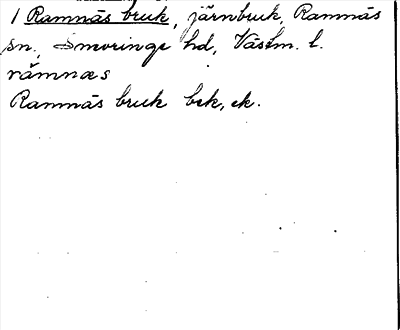 1 Ramnäs bruk, järnbruk, Ramnäs
sn. Snevringe hd, Västm. l.
rämnæs
Ramnäs bruk bek, ek.